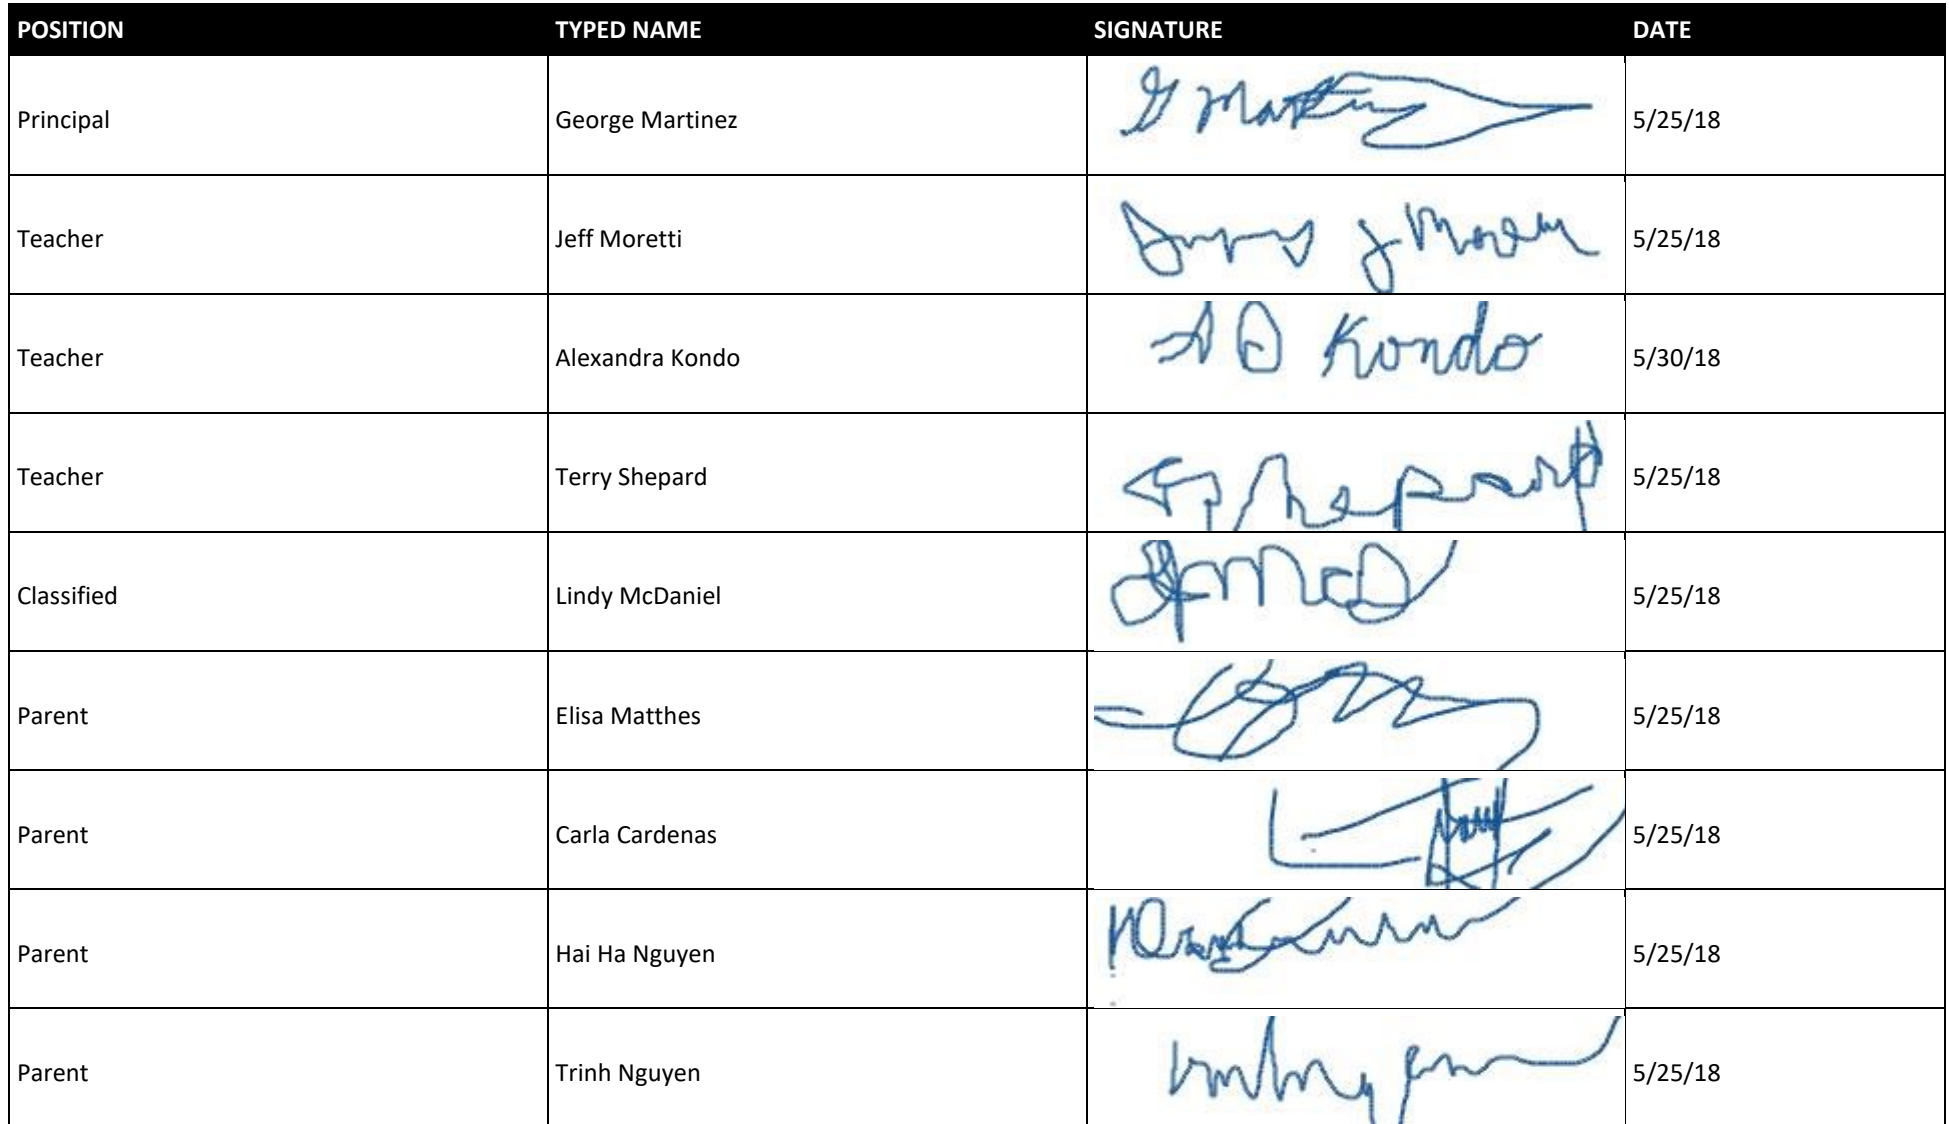 POSITION TYPED NAME SIGNATURE DATE
Principal George Martinez G Martinez 5/25/18
Teacher Jeff Moretti 5/25/18
Teacher Alexandra Kondo A D Kondo 5/30/18
Teacher Terry Shepard Shepard 5/25/18
Classified Lindy McDaniel McD 5/25/18
Parent Elisa Matthes 5/25/18
Parent Carla Cardenas 5/25/18
Parent Hai Ha Nguyen 5/25/18
Parent Trinh Nguyen 5/25/18